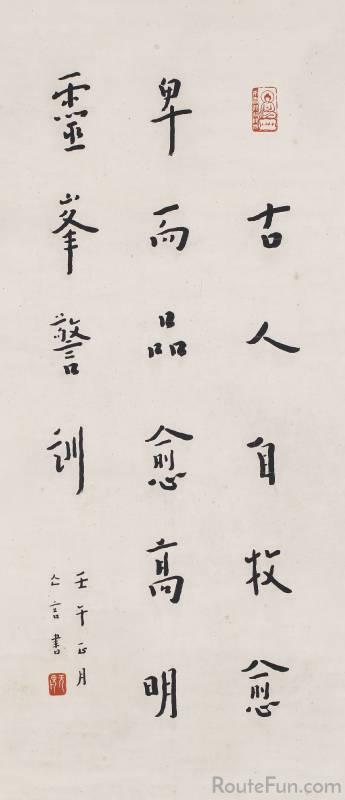 古人自牧愈
卑而品愈高明
靈峯警訓
壬午正月
亼言書
RouteFun.com